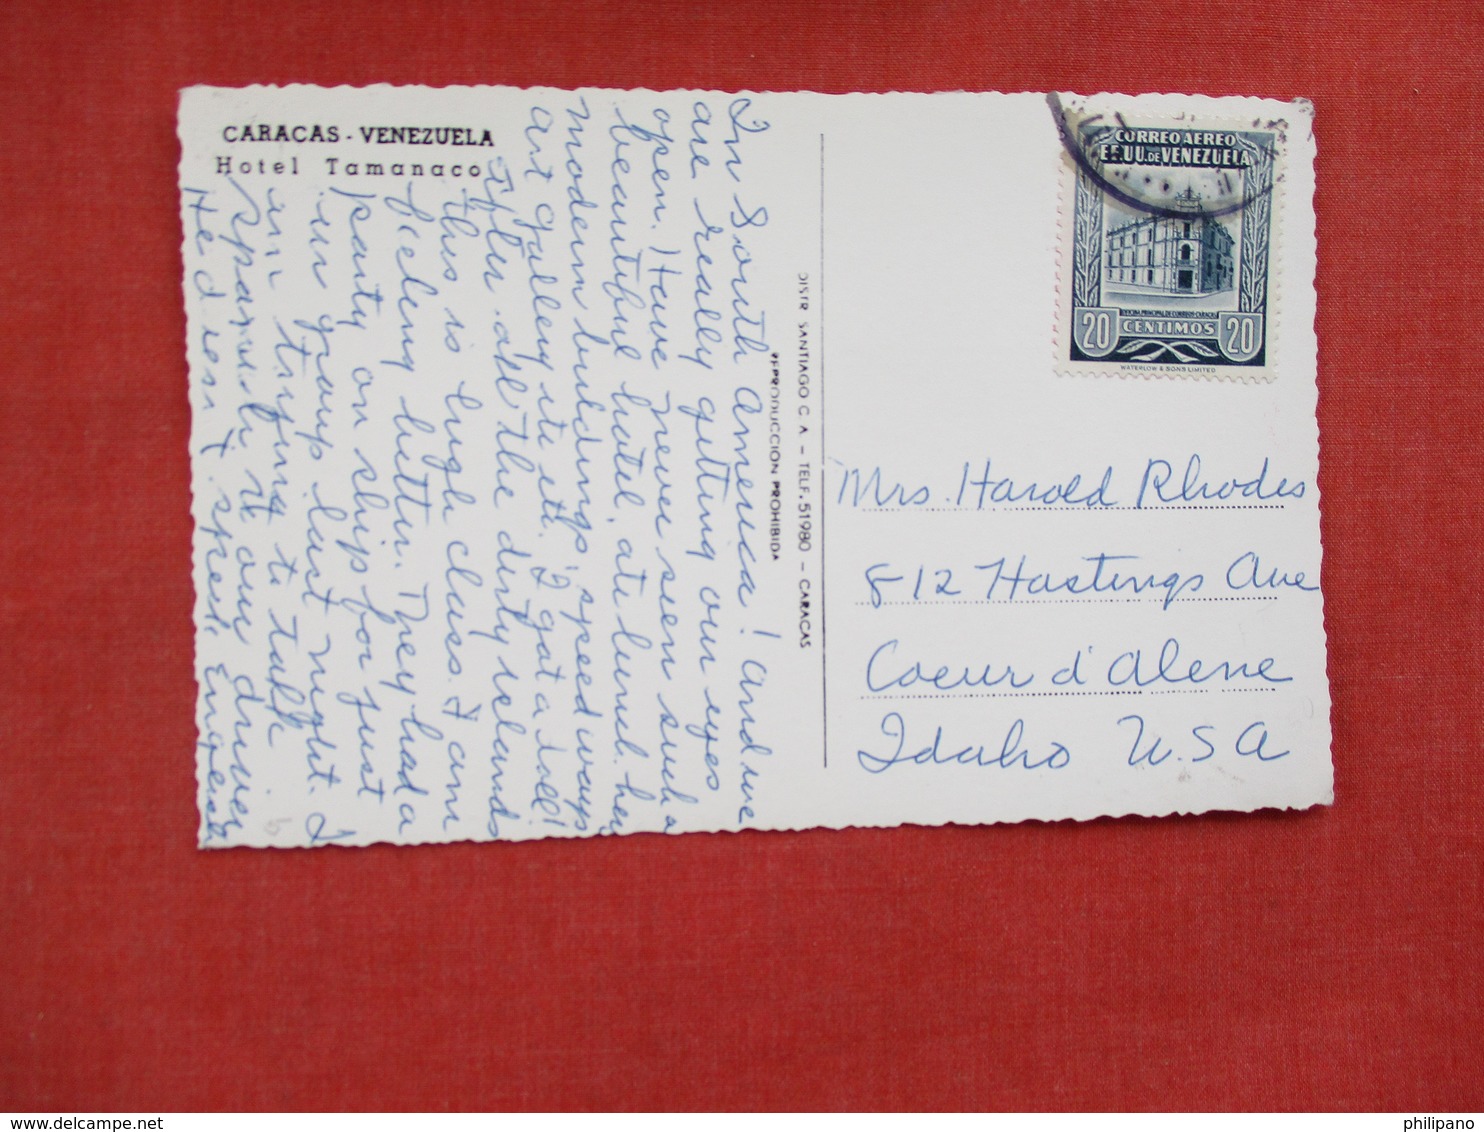 CARACAS - VENEZUELA
Hotel Tamanaco
In South America! And we
are really getting our eyes
open. Have never seen such a
beautiful hotel, ate lunch here
modern buildings, speedways
art gallery etc etc. I got a doll!
After all the dirty islands
this is high class. I am
feeling better. They had a
party on ship for just
our group last night. I
am trying to talk
Spanish to our driver
He doesn't speak English
DISTR. SANTIAGO C. A. - TELF. 51980 - CARACAS
REPRODUCCION PROHIBIDA
CORREO AEREO
EE.UU. DE VENEZUELA
OFICINA PRINCIPAL DE CORREOS-CARACAS
20 CENTIMOS 20
WATERLOW & SONS LIMITED
Mrs. Harold Rhodes
812 Hastings Ave
Coeur d'Alene
Idaho U.S.A
philipano